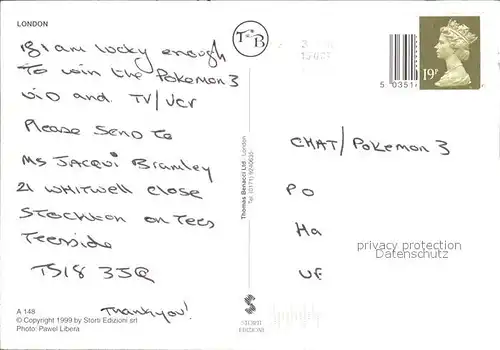 LONDON
If I am lucky enough
To win the Pokemon 3
vio and TV/VCr
Please send to
Ms JACQUi Bramley
21 WHITWELL Close
Stockton on Tees
Teesside
TS18 3JQ
Thankyou!
A 148
© Copyright 1999 by Storti Edizioni srl
Photo: Pawel Libera
Thomas Benacci Ltd. London
STORTI
EDIZIONI
TB
19P
5 0351
CHAT/Pokemon 3
PO
Ha
UF
privacy protection
Datenschutz